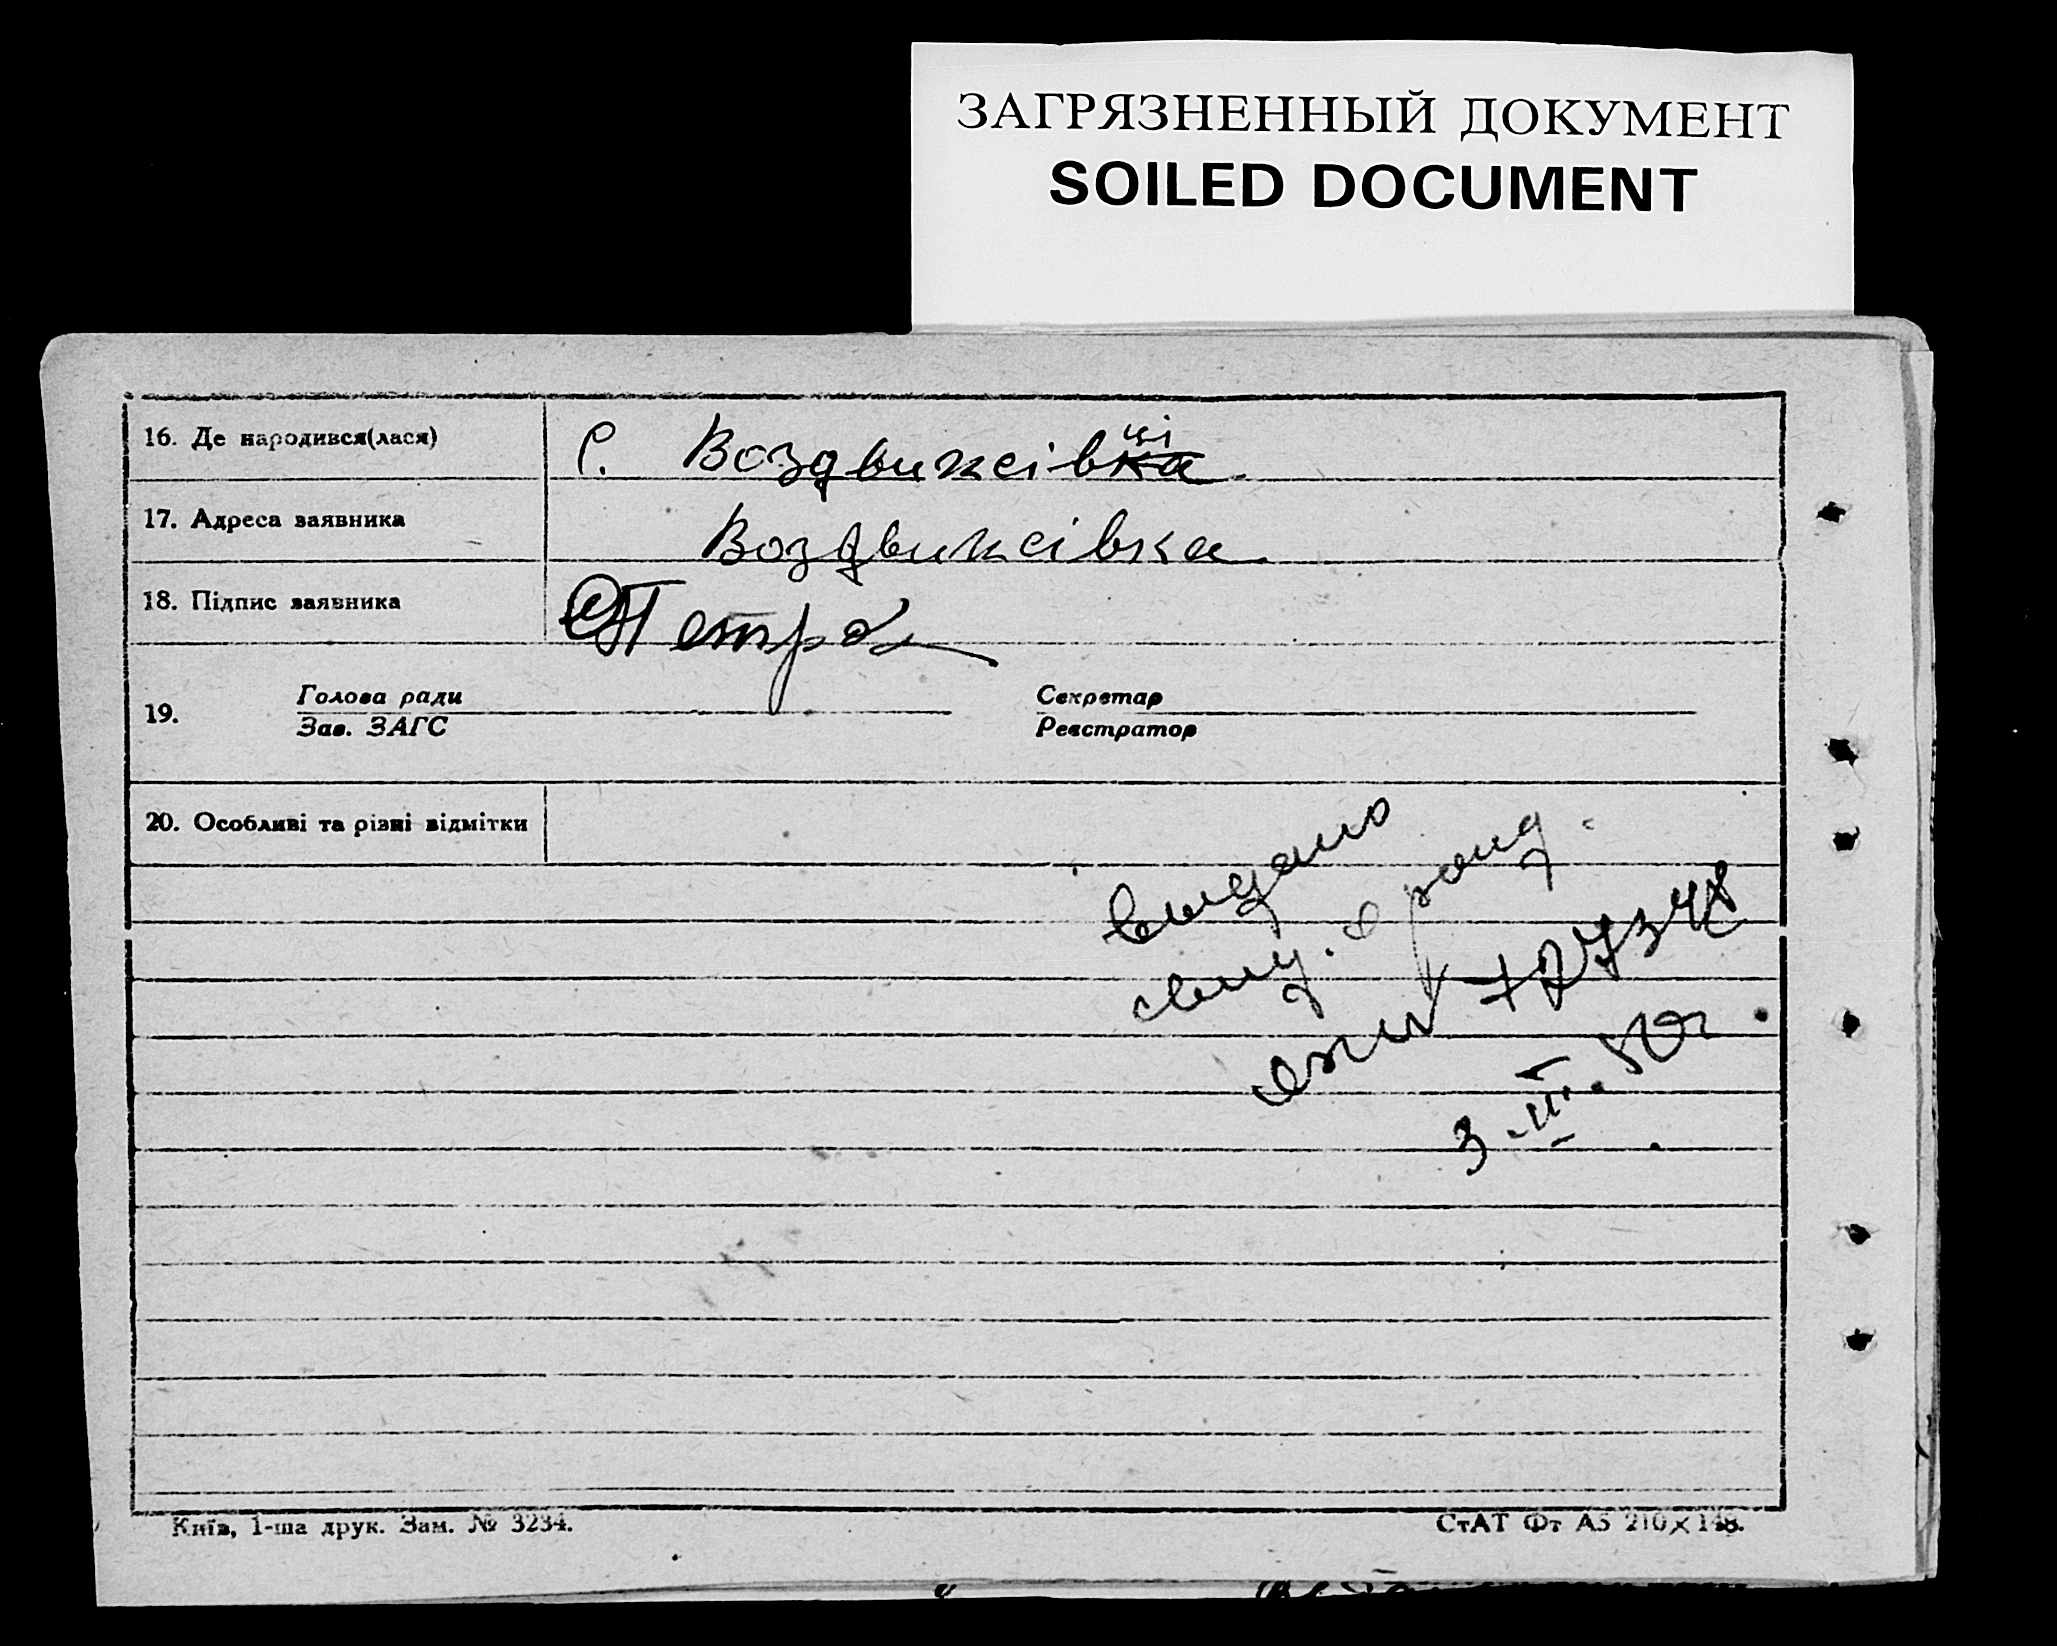 ЗАГРЯЗНЕННЫЙ ДОКУМЕНТ
SOILED DOCUMENT
16. Де народився(лася) С. Воздвижсівка ці
17. Адреса заявника Воздвижсівка
18. Підпис заявника Петра
19. Голова ради Секретар
Зав. ЗАГС Реєстратор
20. Особливі та різні відмітки
видано
свид. о рожд.
727348
3-III.50г
Київ, 1-ша друк. Зам. № 3234. СтАТ Фт А5 210×148.